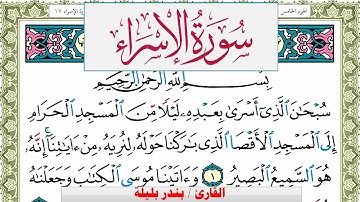 الجزء الخامس
سورة الإسراء ١٧
سُورَةُ الإِسْرَاءِ
بِسْمِ اللَّهِ الرَّحْمَٰنِ الرَّحِيمِ
سُبْحَٰنَ الَّذِىٓ أَسْرَىٰ بِعَبْدِهِۦ لَيْلًا مِّنَ الْمَسْجِدِ الْحَرَامِ
إِلَى الْمَسْجِدِ الْأَقْصَا الَّذِى بَٰرَكْنَا حَوْلَهُۥ لِنُرِيَهُۥ مِنْ ءَايَٰتِنَآ ۚ إِنَّهُۥ
هُوَ السَّمِيعُ الْبَصِيرُ ١ وَءَاتَيْنَا مُوسَى الْكِتَٰبَ وَجَعَلْنَٰهُ
القارئ / بندر بليلة